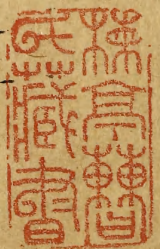 楝亭曹
氏藏書